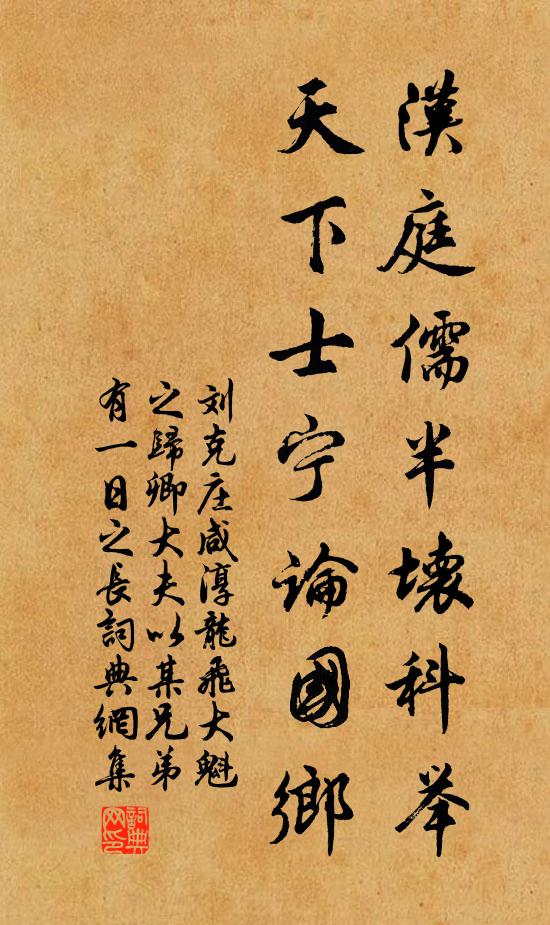 漢庭儒半壞科举
天下士宁論國鄉
刘克庄咸淳龍飛大魁
之歸卿大夫以某兄弟
有一日之長詞典網集
詞典网印